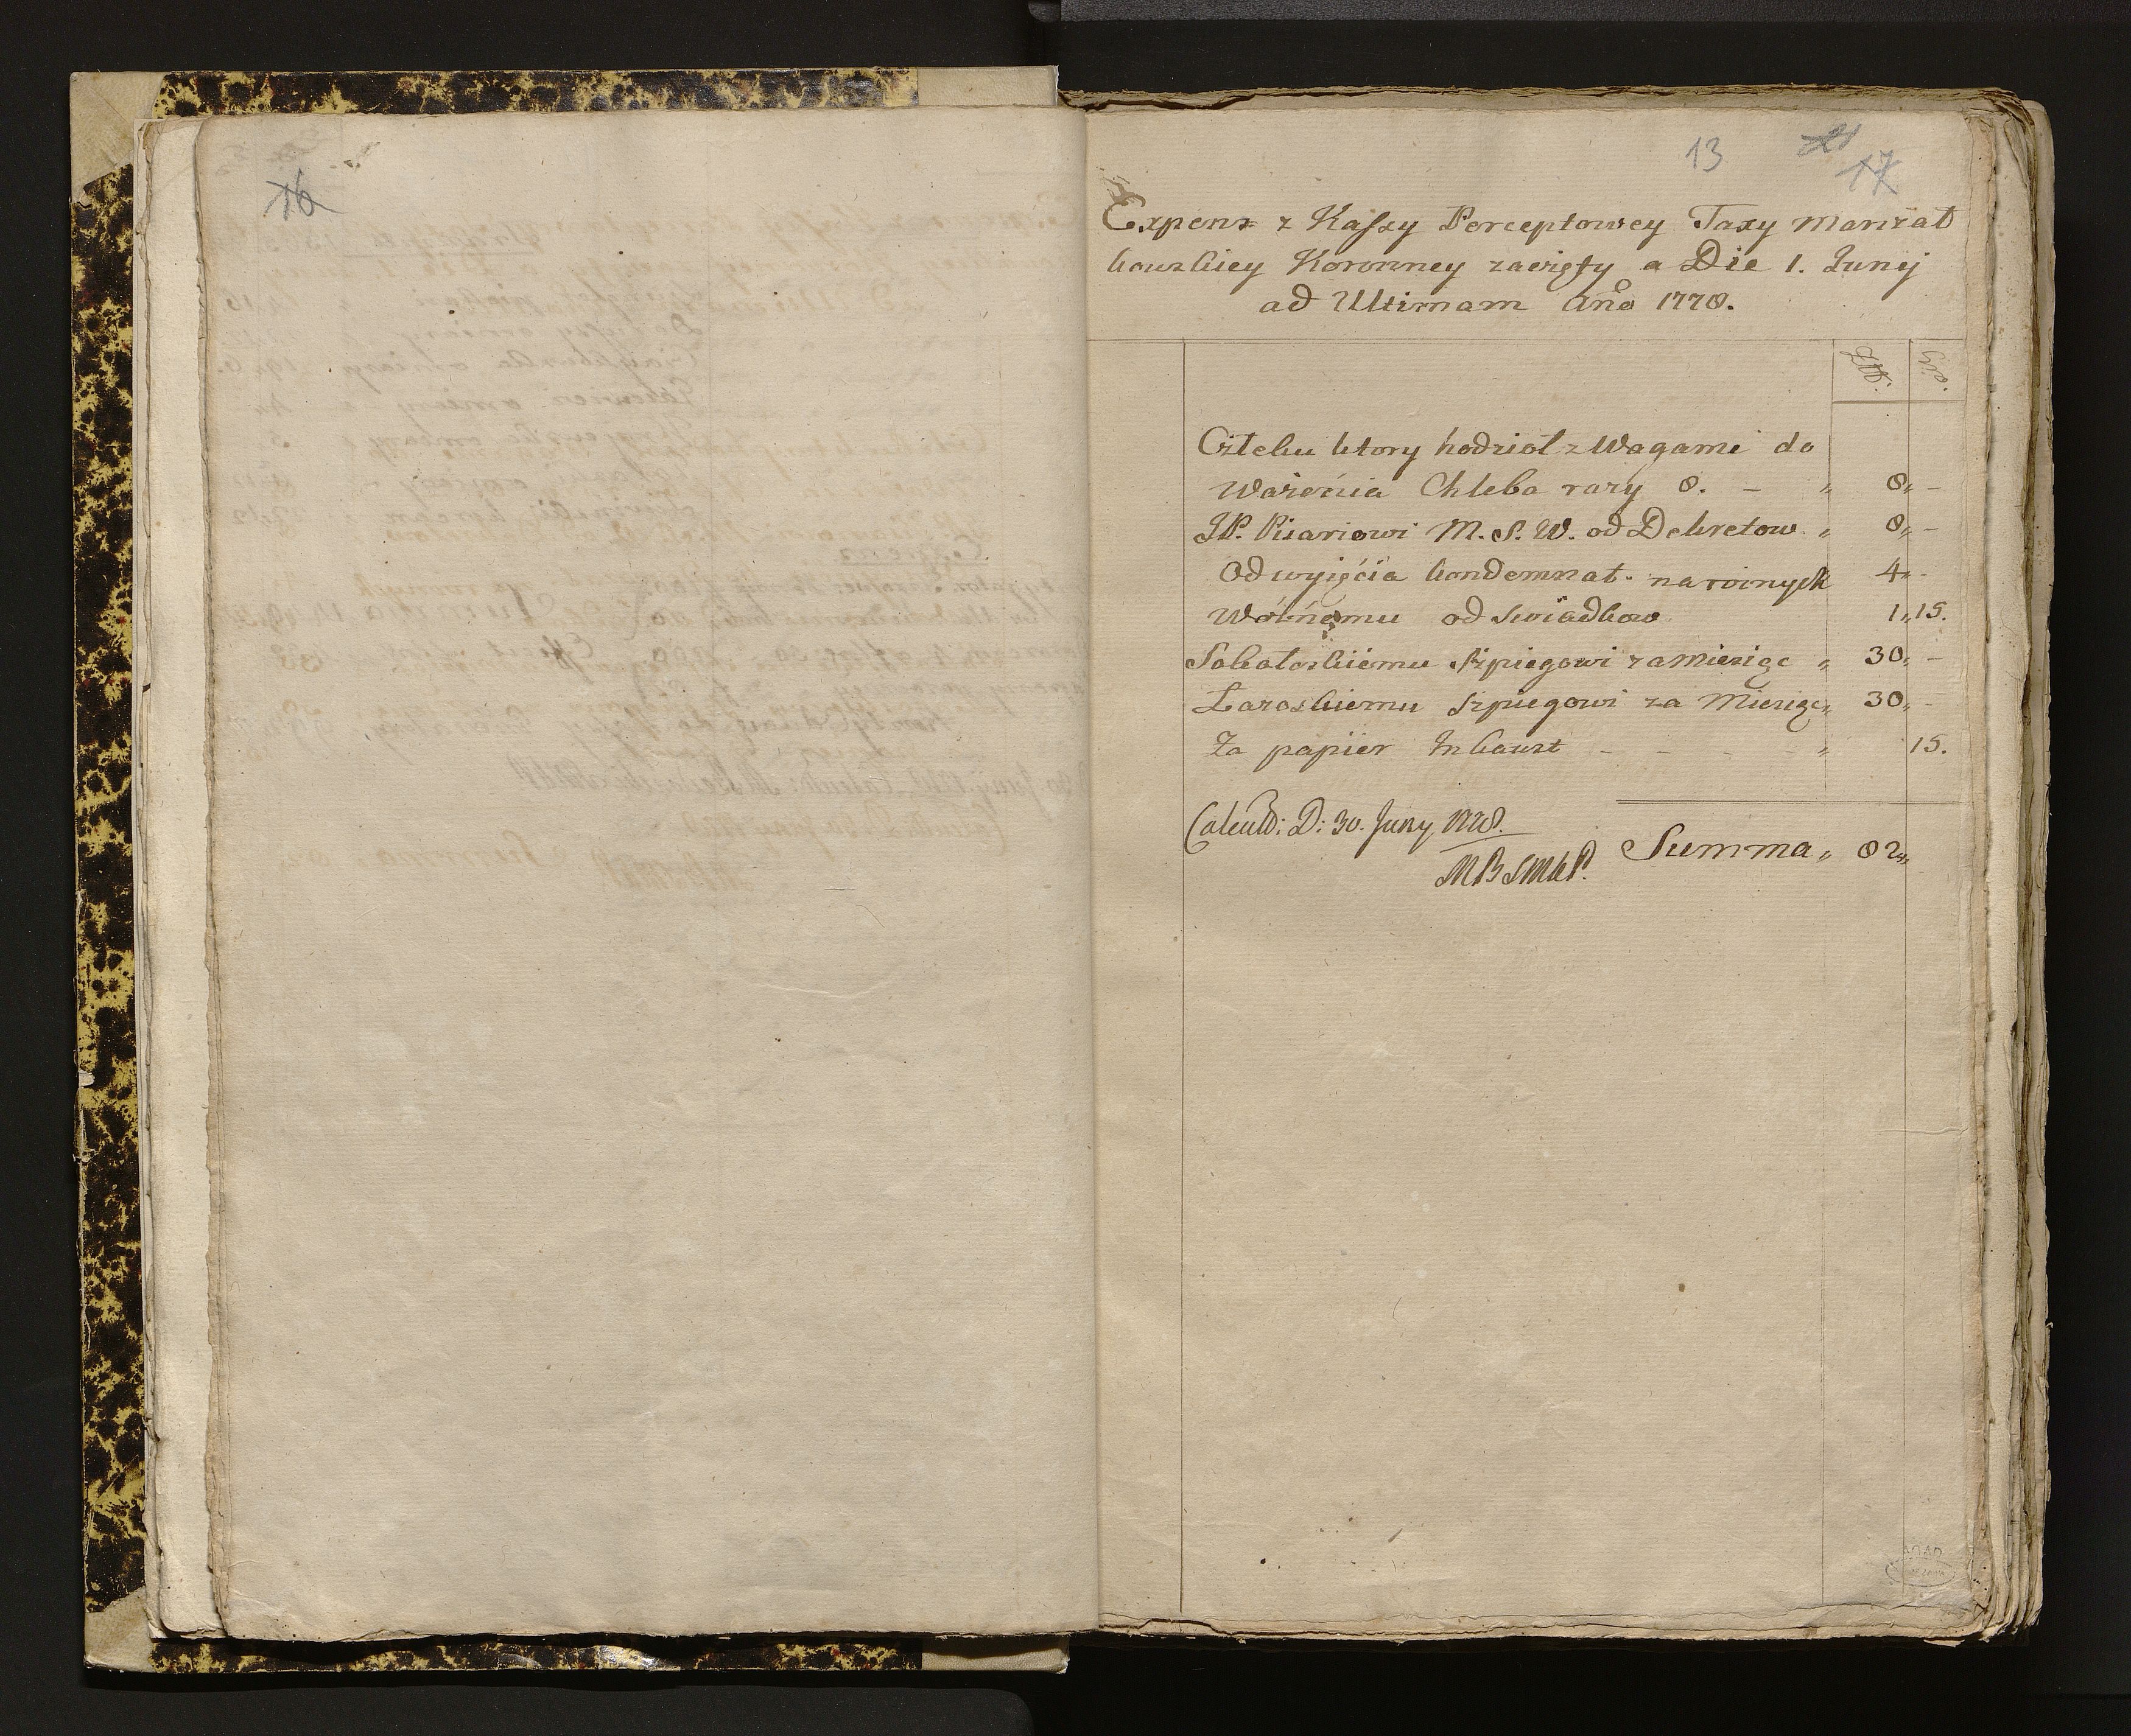 16
13
17
Expens z Kassy Perceptowey Taxy Marszał
kowskiey Koronney zawzięty a Die 1. Junij
ad Ultimam Año 1778.
Złł. Gr.
Człeku ktory hodził z Wagami do
Ważenia Chleba razy 8. - „ 8„ -
JP. Pisarżowi M. S. W. od Dekretow „ 8„ -
Od wyięćia kondemnat. na roznych 4„ -
Woźnemu od Swiadkow 1„ 15.
Sokołoskiemu Szpiegowi za Miesiąc „ 30„ -
Łazoskiemu Szpiegowi za Miesiąc „ 30„ -
Za papier Inkaust - - - - „ 15.
Calculd: D: 30. Juny 1778.
Summa „ 82„
MBSMkP.